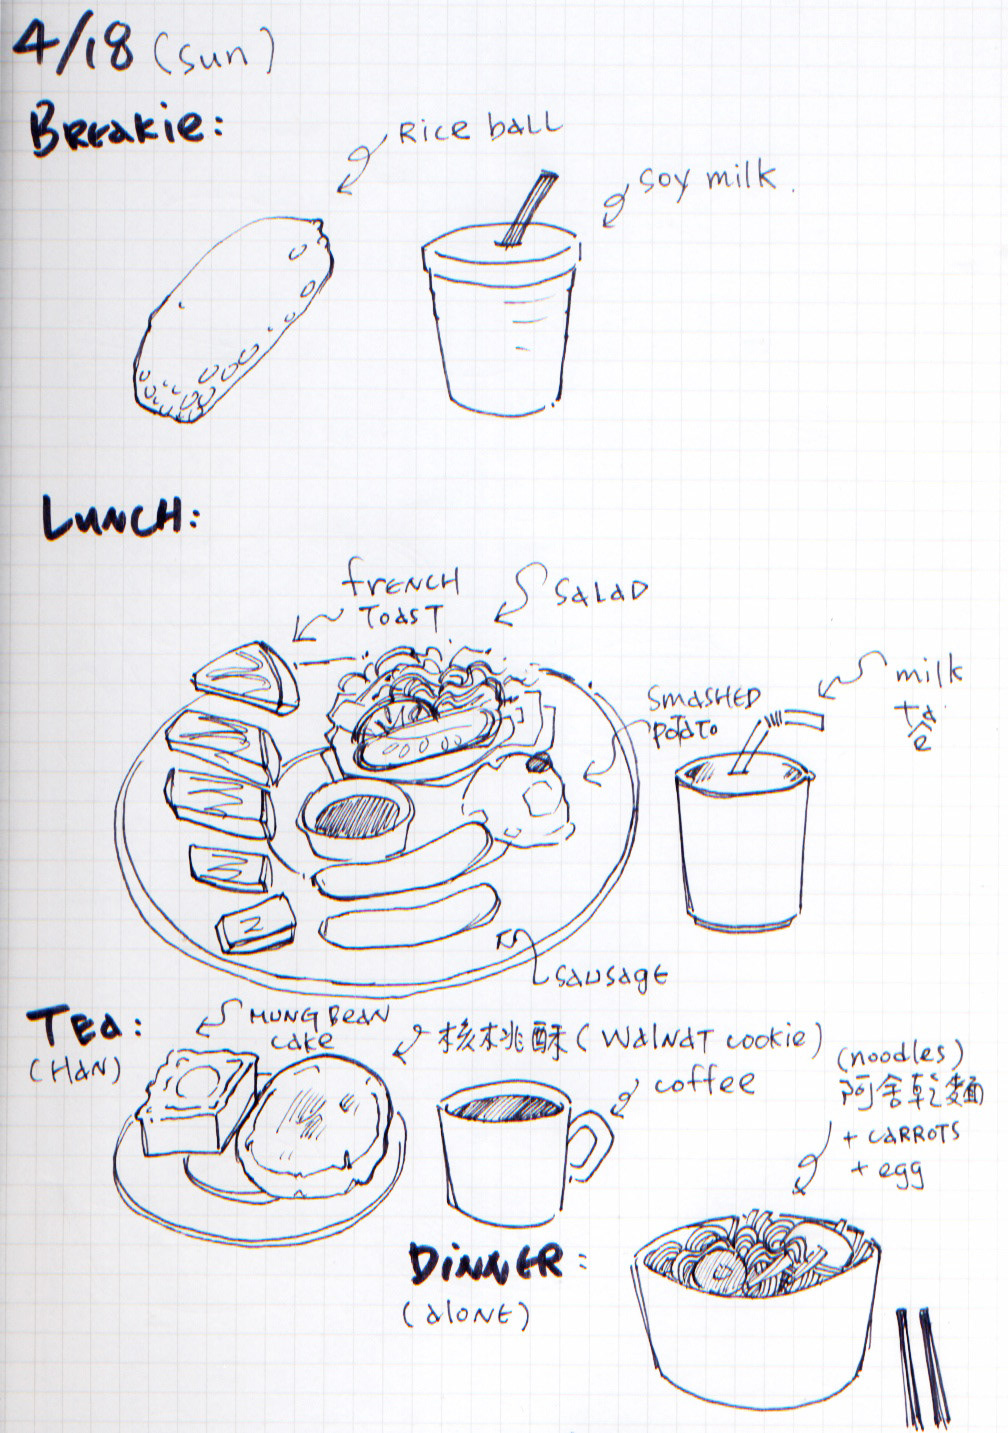 4/18 (sun)
Breakie:
Rice ball
soy milk.
LUNCH:
fRENCH
TOAST
SALAD
SMASHED
POTATO
milk
tea
SAUSAGE
Tea:
(HAN)
MUNG BEAN
cake
核桃酥 (WALNAT cookie)
coffee
(noodles)
阿舍乾麵
+ CARROTS
+ egg
DINNER:
(alone)